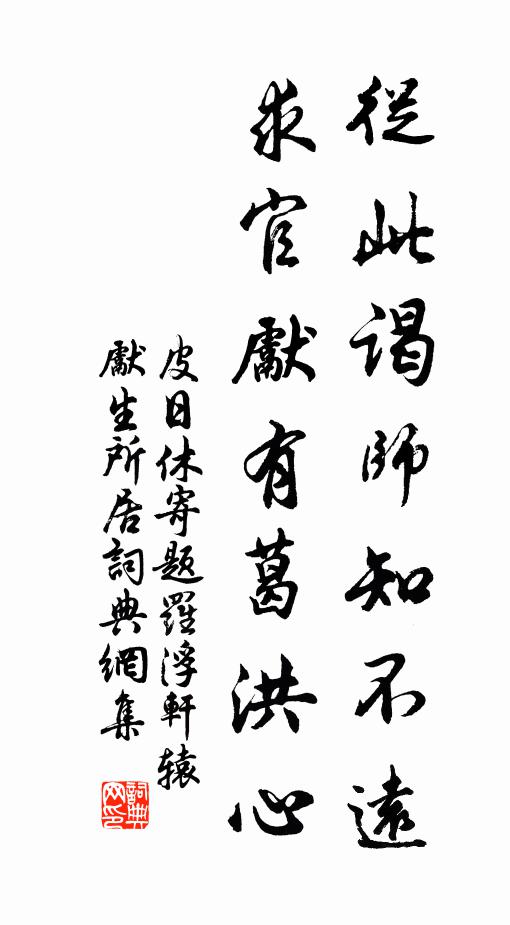 從此謁師知不遠
求官獻有葛洪心
皮日休寄題羅浮軒辕
獻生所居詞典網集
詞典
网印